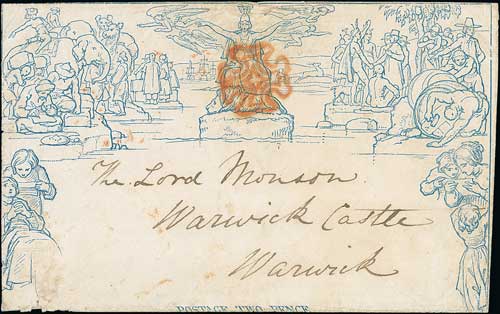 The Lord Monson
Warwick Castle
Warwick
POSTAGE TWO PENCE